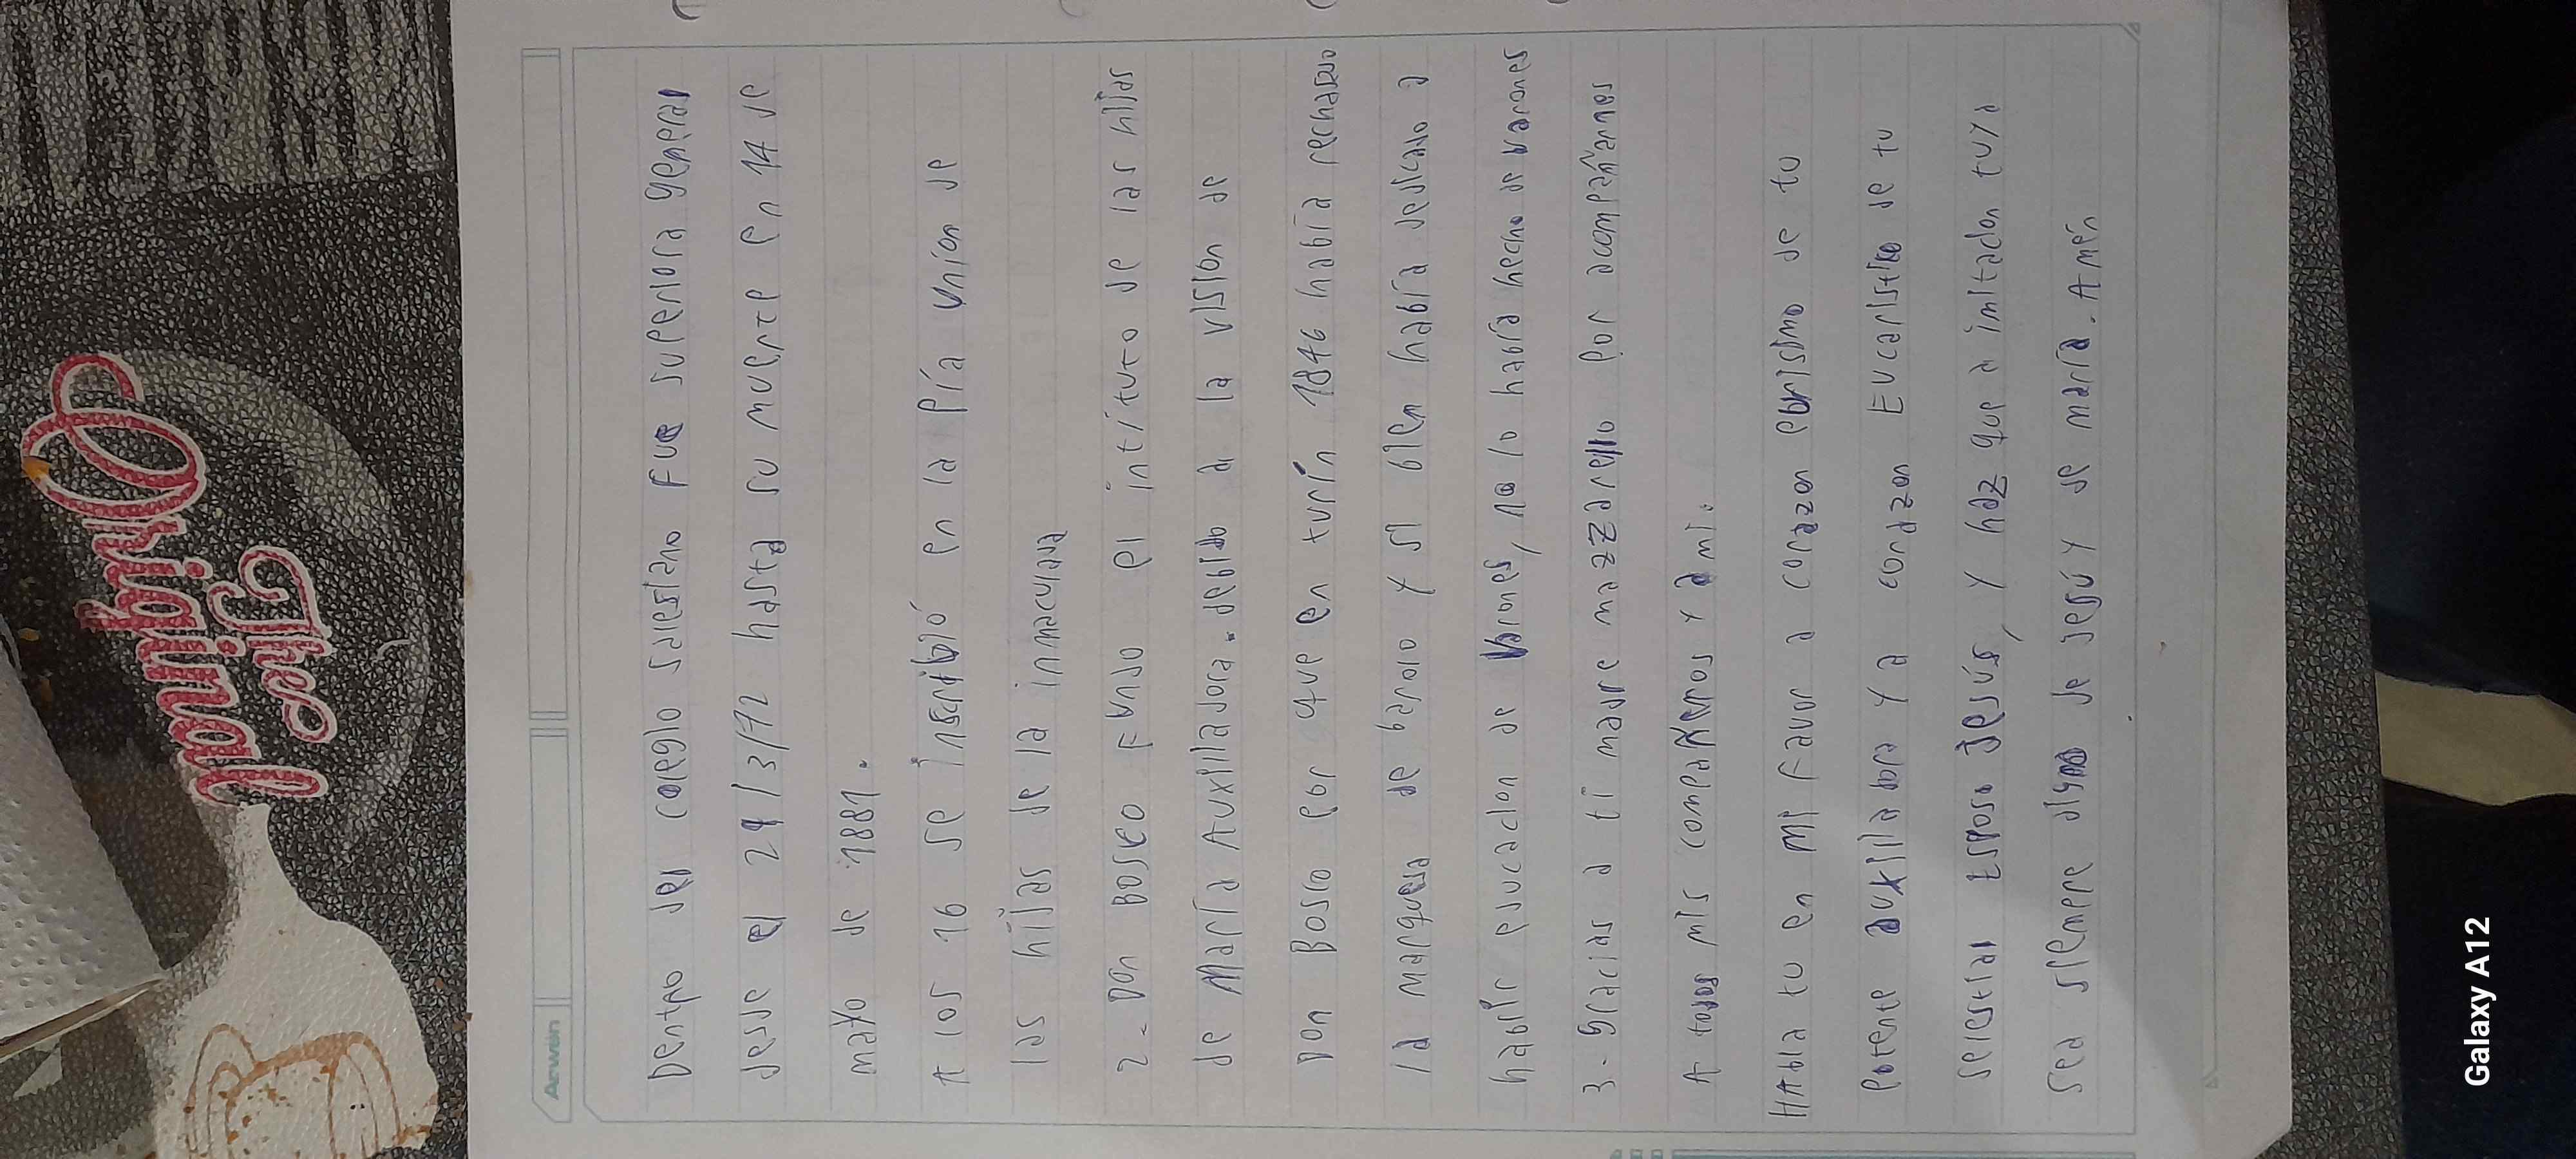 The
Original
Arwen
Dentro del coleglo saleslano Fue superiora general
desde el 29/3/72 hasta su muerte en 14 de
mayo de 1881.
A los 16 se inscribió en la Pía Unión de
las hijas de la inmaculada
2-Don Bosco Fundo el intituto de las hijas
de María Auxilladora.debido a la vision de
Don Bosco por que en turín 1846 había rechazado
la marquesa de barolo y si bien había dedicado a
habir educacion de Varones, no lo había hecho de varones
3-Gracias a ti madre mazzarello por acompañarnos
A todos mis compañeros y a mi.
HAbla tu en mi Favor a corazon purisimo de tu
Potente auxiliadora y a corazon Eucaristico de tu
selestial Esposo Jesús, y haz que a imitacion tuya
sea siempre digno de Jesús y de maría. Amén
Galaxy A12